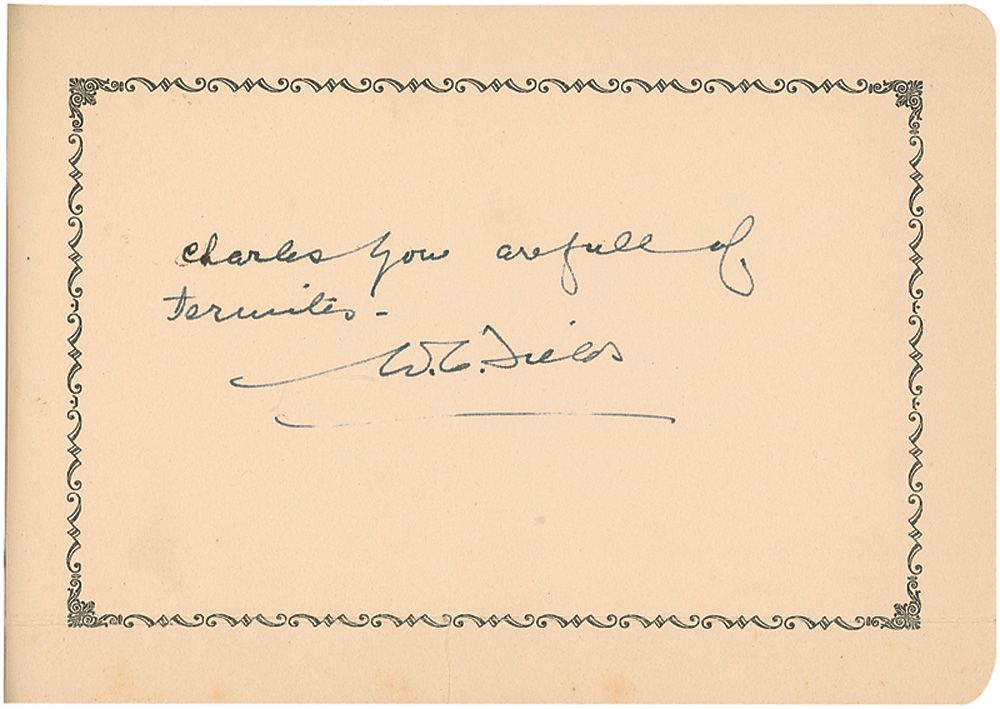 charles you are full of
termites -
W.C. Fields